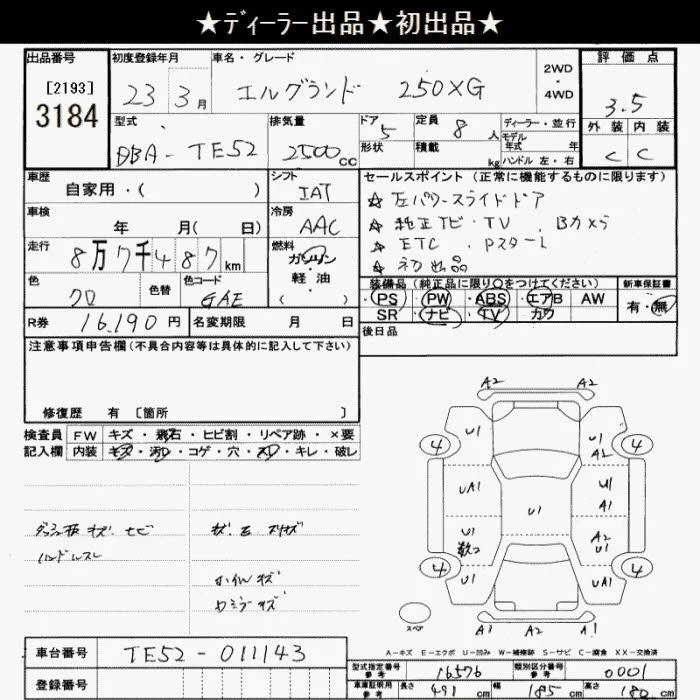 ★ディーラー出品★初出品★
出品番号 初度登録年月 車名・グレード 2WD・4WD 評価点
[2193] 3184 23年 3月 エルグランド 250XG 3.5
型式 排気量 ドア 定員 ディーラー・並行 外装 内装
DBA-TE52 2500cc 5 8人 モデル年式 年 C C
形状 積載 kg ハンドル 左・右
車歴 シフト セールスポイント(正常に機能するものに限ります)
自家用・( ) IAT ☆左パワースライドドア
車検 冷房 ☆純正ナビ・TV Bカメラ
年 月(日) AAC ☆ETC Pスタート
走行 燃料 ☆初出品
8万7千487km ガソリン・軽油( )
装備品(純正品に限り○をつけてください) 新車保証書
色 色替 色コード PS PW ABS エアB AW 有・無
クロ GAE SR ナビ TV カワ
R券 16,190円 名変期限 月 日 後日品
注意事項申告欄(不具合内容等は具体的に記入して下さい)
修復歴 有 [箇所 ]
検査員 FW キズ・飛石・ヒビ割・リペア跡・×要
記入欄 内装 キズ・汚レ・コゲ・穴・スレ・キレ・破レ
ハンドルスレ
A2 A2
U1 U1 A2
4 4
UA1 U1 A1
U1
U1 A2 U1
4 4
U1 UA1
スペア
A1 A2 A1
A-キズ E-エクボ U-凹み W-補修跡 S-サビ C-腐食 XX-交換済
車台番号 TE52-011143
登録番号
型式指定番号 参考 16576 類別区分番号 参考 0001
車庫証明用 参考 長さ 491cm 幅 185cm 高さ 180cm